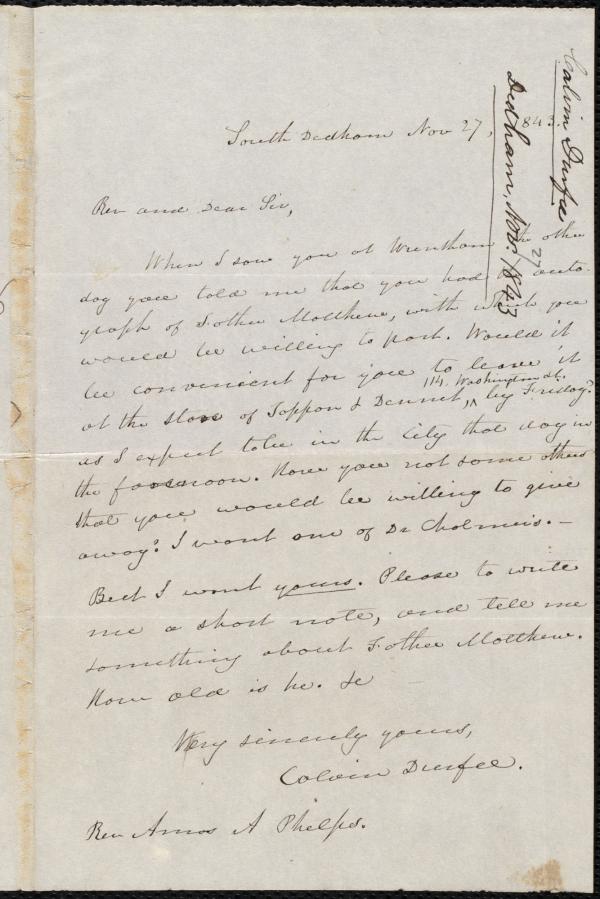 Calvin Durfee
Dedham, Nov. 27 1843
South Dedham Nov 27, 1843.
Rev and Dear Sir,
When I saw you at Wrentham the other
day you told me that you had an auto-
graph of Father Matthew, with which you
would be willing to part. Would it
be convenient for you to leave it
114. Washington st.
at the store of Tappan & Dennet, ^ by Friday?
as I expect to be in the City that day in
the forenoon. Have you not some others
that you would be willing to give
away? I want one of Dr Chalmers. —
But I want yours. Please to write
me a short note, and tell me
something about Father Matthew.
How old is he. &c
Very sincerely yours,
Calvin Durfee.
Rev Amos A Phelps.